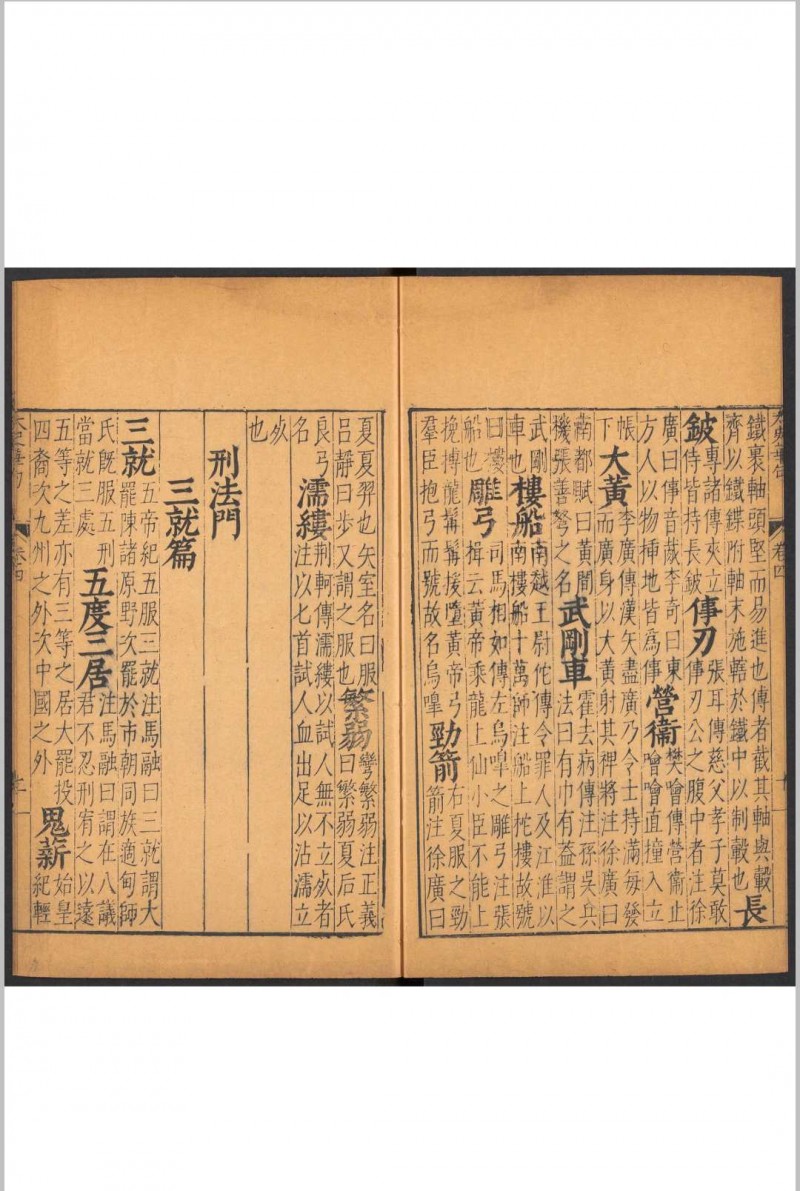 鐵裹軸頭堅而易進也傳者截其軸與轂
齊以鐵鍱附軸末施轄於鐵中以制轂也長
鈹專諸傳夾立侍皆持長鈹倳刃張耳傳慈父孝子莫敢倳刃公之腹中者注徐
廣曰倳音菑李奇曰東方人以物插地皆為倳營衞樊噲傳營衞止噲噲直撞入立
帳下大黃李廣傳漢矢盡廣乃令士持滿毋發而廣身以大黃射其裨將注徐廣曰
南都賦曰黃間機張善弩之名武剛車霍去病傳注孫吳兵法曰有巾有蓋謂之
武剛車也樓船南越王尉佗傳令罪人及江淮以南樓船十萬師注船上柁樓故號
曰樓船也雕弓司馬相如傳左烏嘷之雕弓注張揖云黃帝乘龍上仙小臣不能上
挽摶龍髯髯拔墮黃帝弓羣臣抱弓而號故名烏嘷勁箭右夏服之勁箭注徐廣曰
夏夏羿也矢室名曰服呂靜曰步叉謂之服也繁弱彎繁弱注正義曰繁弱夏后氏
良弓名濡縷荊軻傳濡縷以試人無不立㱙者注以匕首試人血出足以沾濡立
㱙也
刑法門
三就篇
三就五帝紀五服三就注馬融曰三就謂大罷陳諸原野次罷於市朝同族適甸師
氏旣服五刑當就三處五度三居注馬融曰謂在八議君不忍刑宥之以遠
五等之差亦有三等之居大罷投四裔次九州之外次中國之外鬼薪始皇紀輕
太史華句
卷四